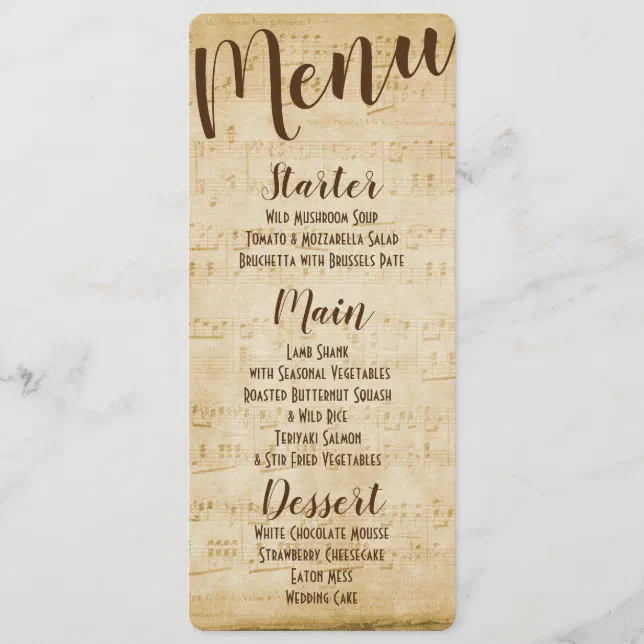 Menu
Starter
Wild Mushroom Soup
Tomato & Mozzarella Salad
Bruchetta with Brussels Pate
Main
Lamb Shank
with Seasonal Vegetables
Roasted Butternut Squash
& Wild Rice
Teriyaki Salmon
& Stir Fried Vegetables
Dessert
White Chocolate Mousse
Strawberry Cheesecake
Eaton Mess
Wedding Cake